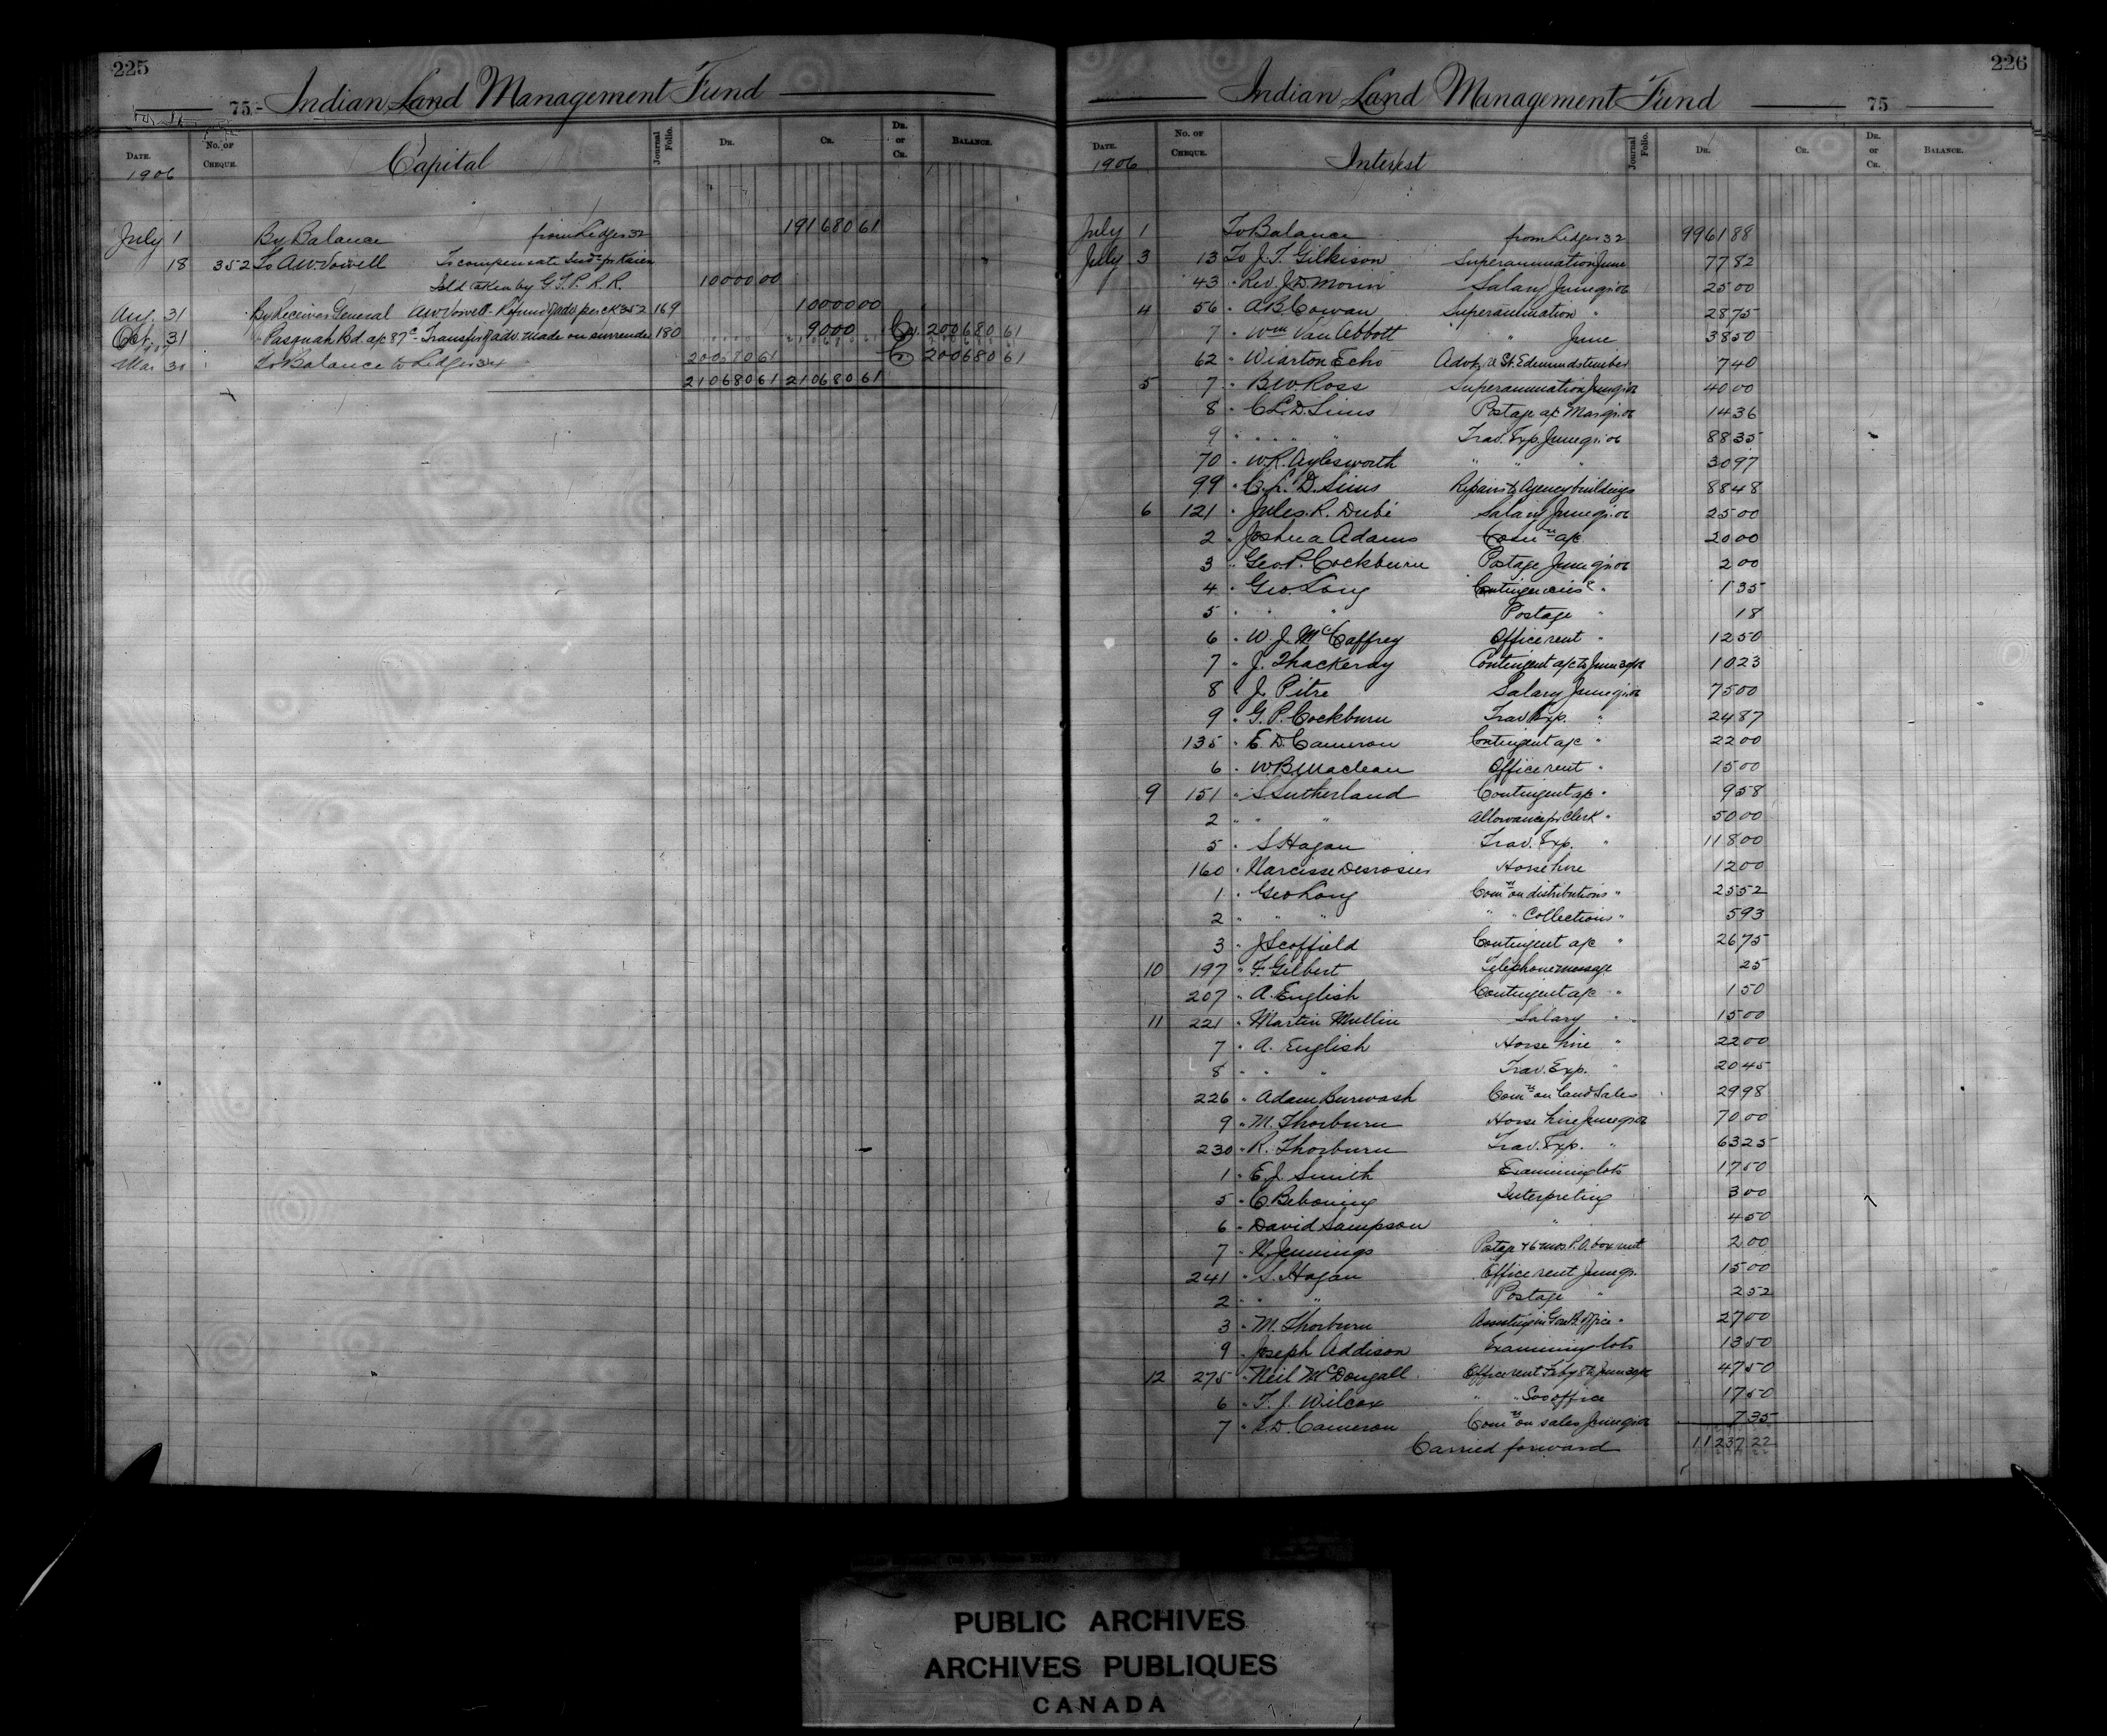 225
75 - Indian Land Management Fund
DATE. No. OF CHEQUE. Capital Journal Folio. DR. CR. DR. or CR. BALANCE.
1906
July 1 By Balance from Ledger 32 191680 61
18 352 To A.W. Vowell To compensate Inds. for
land taken by G.T.P.R.R. 10000 00
Aug. 31 By Receiver General A.W. Vowell - Refund adv. per ck 352 169 10000 00
Oct. 31 " Pasquah Bd. a/c 87c - Transfer of adv. made on surrender 180 90 00 Cr. 200680 61
Mar 31 To Balance to Ledger 34 200680 61 Cr. 200680 61
210680 61 210680 61
226
Indian Land Management Fund 75
DATE. No. OF CHEQUE. Interest Journal Folio. DR. CR. DR. or CR. BALANCE.
1906
July 1 To Balance from Ledger 32 9961 88
July 3 13 To J.T. Gilkison Superannuation June 77 82
43 " Rev. J.D. Morin Salary June qr. 06 25 00
4 56 " A B Cowan Superannuation " 28 75
7 " Wm Van Abbott " June 38 50
62 " Wiarton Echo Advtg. St. Edmunds timber 7 40
5 7 " B W Ross Superannuation June qr 06 40 00
8 " C.L.D. Sims Postage a/c Mar qr. 06 14 36
9 " " " Trav. Exp. June qr. 06 88 35
70 " W.R. Aylesworth " " " 30 97
99 " C.L.D. Sims Repairs to Agency buildings 88 48
6 121 " Jules R. Dubé Salary June qr. 06 25 00
2 " Joshua Adams a/c 20 00
3 " Geo. P. Cockburn Postage June qr 06 2 00
4 " Geo. Long Contingencies " 1 35
5 " " Postage " 18
6 " W. J. McCaffrey Office rent " 12 50
7 " J. Thackeray Contingent a/c to June 30/06 10 23
8 " J. Pitre Salary June qr. 06 75 00
9 " G. P. Cockburn Trav Exp. " 24 87
135 " E. D. Cameron Contingent a/c " 22 00
6 " W.B. Maclean Office rent " 15 00
9 151 " S Sutherland Contingent a/c " 9 58
2 " " " Allowance for Clerk " 50 00
5 " S Hagan Trav. Exp. " 118 00
160 " Narcisse Desrosiers Horse hire 12 00
1 " Geo Long Comn on distributions " 25 52
2 " " " " " Collections " 5 93
3 " J Scoffield Contingent a/c " 26 75
10 197 " F. Gilbert Telephone message 25
207 " A. English Contingent a/c " 1 50
11 221 " Martin Mullin Salary " 15 00
7 " A. English Horse hire " 22 00
8 " " Trav. Exp. " 20 45
226 " Adam Burwash Comn on land sales 29 98
9 " M. Thorburn Horse hire June qr 06 70 00
230 " R. Thorburn Trav. Exp. " 63 25
1 " E.J. Smith Examining lots 17 50
5 " C Beboning Interpreting 3 00
6 " David Sampson " 4 50
7 " Jennings Postage & 6 mos. P.O. box rent 2 00
241 " S. Hagan Office rent June qr. 15 00
2 " " Postage " 2 52
3 " M. Thorburn Assisting in office " 27 00
9 " Joseph Addison Examining lots 13 50
12 275 " Neil McDougall Office rent Feby 8 to June 30/06 47 50
6 " T. J. Wilcox " " Soo office 17 50
7 " E.D. Cameron Comn on sales June qr 06 7 35
Carried forward 11237 22
PUBLIC ARCHIVES
ARCHIVES PUBLIQUES
CANADA